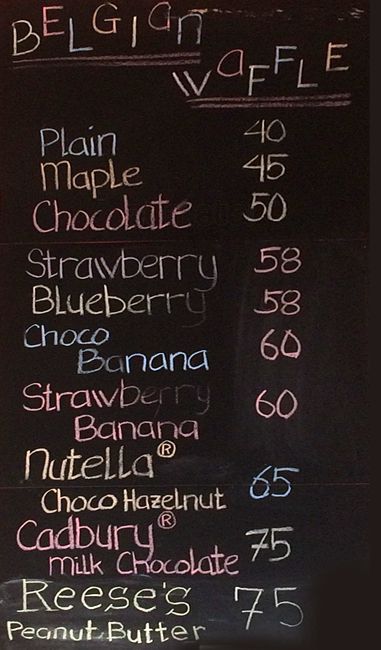 BELGIAn
WaFFLE
Plain 40
Maple 45
Chocolate 50
Strawberry 58
BLueberry 58
Choco
Banana 60
Strawberry
Banana 60
nutella®
Choco Hazelnut 65
Cadbury®
milk Chocolate 75
Reese's
Peanut Butter 75